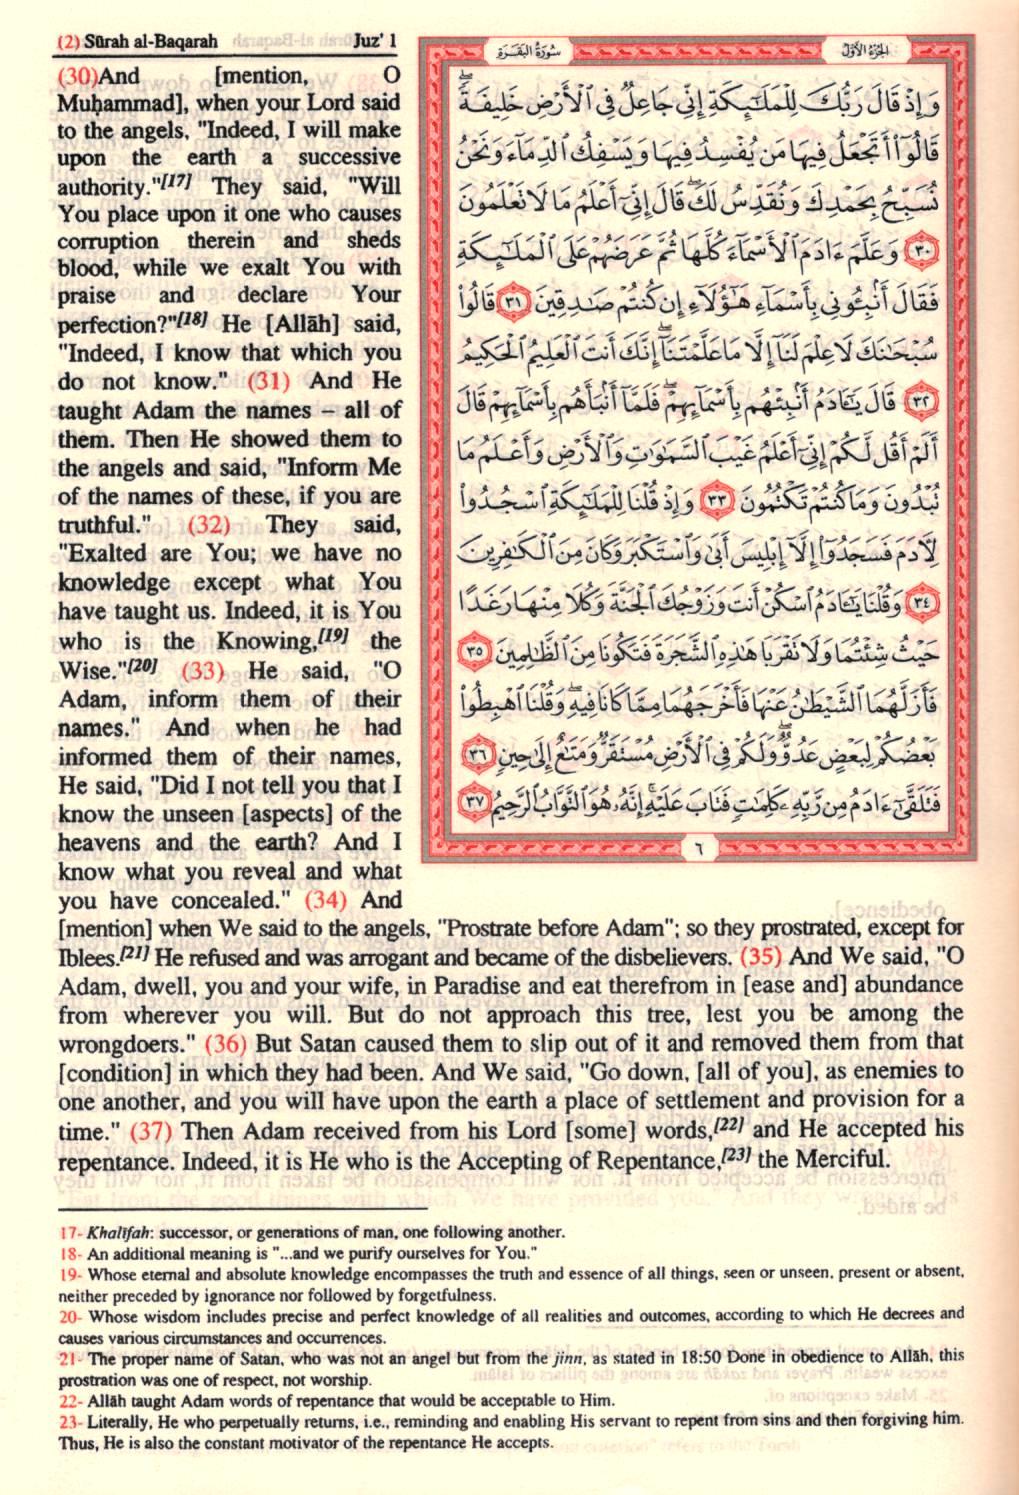 (2) Sūrah al-Baqarah Juz' 1
(30)And [mention, O
Muḥammad], when your Lord said
to the angels, "Indeed, I will make
upon the earth a successive
authority."[17] They said, "Will
You place upon it one who causes
corruption therein and sheds
blood, while we exalt You with
praise and declare Your
perfection?"[18] He [Allāh] said,
"Indeed, I know that which you
do not know." (31) And He
taught Adam the names – all of
them. Then He showed them to
the angels and said, "Inform Me
of the names of these, if you are
truthful." (32) They said,
"Exalted are You; we have no
knowledge except what You
have taught us. Indeed, it is You
who is the Knowing,[19] the
Wise."[20] (33) He said, "O
Adam, inform them of their
names." And when he had
informed them of their names,
He said, "Did I not tell you that I
know the unseen [aspects] of the
heavens and the earth? And I
know what you reveal and what
you have concealed." (34) And
الجزء الأول سورة البقرة
وَإِذْ قَالَ رَبُّكَ لِلْمَلَٰٓئِكَةِ إِنِّى جَاعِلٌ فِى ٱلْأَرْضِ خَلِيفَةً ۖ
قَالُوٓا۟ أَتَجْعَلُ فِيهَا مَن يُفْسِدُ فِيهَا وَيَسْفِكُ ٱلدِّمَآءَ وَنَحْنُ
نُسَبِّحُ بِحَمْدِكَ وَنُقَدِّسُ لَكَ ۖ قَالَ إِنِّىٓ أَعْلَمُ مَا لَا تَعْلَمُونَ
٣٠ وَعَلَّمَ ءَادَمَ ٱلْأَسْمَآءَ كُلَّهَا ثُمَّ عَرَضَهُمْ عَلَى ٱلْمَلَٰٓئِكَةِ
فَقَالَ أَنۢبِـُٔونِى بِأَسْمَآءِ هَٰٓؤُلَآءِ إِن كُنتُمْ صَٰدِقِينَ ٣١ قَالُوا۟
سُبْحَٰنَكَ لَا عِلْمَ لَنَآ إِلَّا مَا عَلَّمْتَنَآ ۖ إِنَّكَ أَنتَ ٱلْعَلِيمُ ٱلْحَكِيمُ
٣٢ قَالَ يَٰٓـَٔادَمُ أَنۢبِئْهُم بِأَسْمَآئِهِمْ ۖ فَلَمَّآ أَنۢبَأَهُم بِأَسْمَآئِهِمْ قَالَ
أَلَمْ أَقُل لَّكُمْ إِنِّىٓ أَعْلَمُ غَيْبَ ٱلسَّمَٰوَٰتِ وَٱلْأَرْضِ وَأَعْلَمُ مَا
تُبْدُونَ وَمَا كُنتُمْ تَكْتُمُونَ ٣٣ وَإِذْ قُلْنَا لِلْمَلَٰٓئِكَةِ ٱسْجُدُوا۟
لِءَادَمَ فَسَجَدُوٓا۟ إِلَّآ إِبْلِيسَ أَبَىٰ وَٱسْتَكْبَرَ وَكَانَ مِنَ ٱلْكَٰفِرِينَ
٣٤ وَقُلْنَا يَٰٓـَٔادَمُ ٱسْكُنْ أَنتَ وَزَوْجُكَ ٱلْجَنَّةَ وَكُلَا مِنْهَا رَغَدًا
حَيْثُ شِئْتُمَا وَلَا تَقْرَبَا هَٰذِهِ ٱلشَّجَرَةَ فَتَكُونَا مِنَ ٱلظَّٰلِمِينَ ٣٥
فَأَزَلَّهُمَا ٱلشَّيْطَٰنُ عَنْهَا فَأَخْرَجَهُمَا مِمَّا كَانَا فِيهِ ۖ وَقُلْنَا ٱهْبِطُوا۟
بَعْضُكُمْ لِبَعْضٍ عَدُوٌّ ۖ وَلَكُمْ فِى ٱلْأَرْضِ مُسْتَقَرٌّ وَمَتَٰعٌ إِلَىٰ حِينٍ ٣٦
فَتَلَقَّىٰٓ ءَادَمُ مِن رَّبِّهِۦ كَلِمَٰتٍ فَتَابَ عَلَيْهِ ۚ إِنَّهُۥ هُوَ ٱلتَّوَّابُ ٱلرَّحِيمُ ٣٧
٦
[mention] when We said to the angels, "Prostrate before Adam"; so they prostrated, except for
Iblees.[21] He refused and was arrogant and became of the disbelievers. (35) And We said, "O
Adam, dwell, you and your wife, in Paradise and eat therefrom in [ease and] abundance
from wherever you will. But do not approach this tree, lest you be among the
wrongdoers." (36) But Satan caused them to slip out of it and removed them from that
[condition] in which they had been. And We said, "Go down, [all of you], as enemies to
one another, and you will have upon the earth a place of settlement and provision for a
time." (37) Then Adam received from his Lord [some] words,[22] and He accepted his
repentance. Indeed, it is He who is the Accepting of Repentance,[23] the Merciful.
17- Khalīfah: successor, or generations of man, one following another.
18- An additional meaning is "...and we purify ourselves for You."
19- Whose eternal and absolute knowledge encompasses the truth and essence of all things, seen or unseen, present or absent,
neither preceded by ignorance nor followed by forgetfulness.
20- Whose wisdom includes precise and perfect knowledge of all realities and outcomes, according to which He decrees and
causes various circumstances and occurrences.
21- The proper name of Satan, who was not an angel but from the jinn, as stated in 18:50 Done in obedience to Allāh, this
prostration was one of respect, not worship.
22- Allāh taught Adam words of repentance that would be acceptable to Him.
23- Literally, He who perpetually returns, i.e., reminding and enabling His servant to repent from sins and then forgiving him.
Thus, He is also the constant motivator of the repentance He accepts.